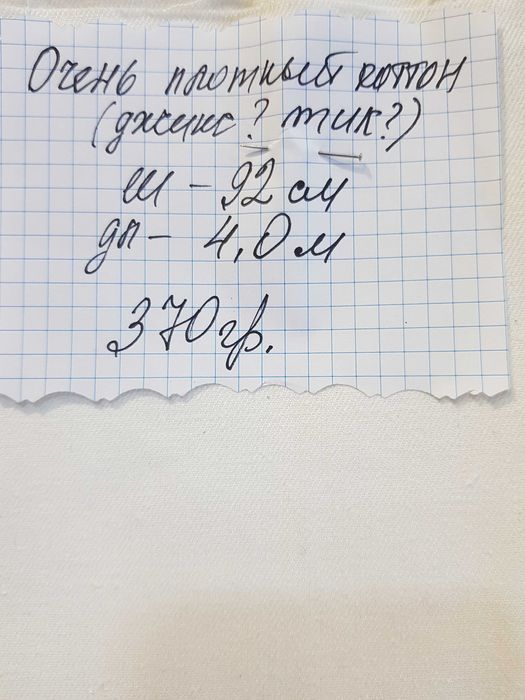 Очень плотный коттон
(джинс? тик?)
ш - 92 см
дл - 4,0 м
370 гр.